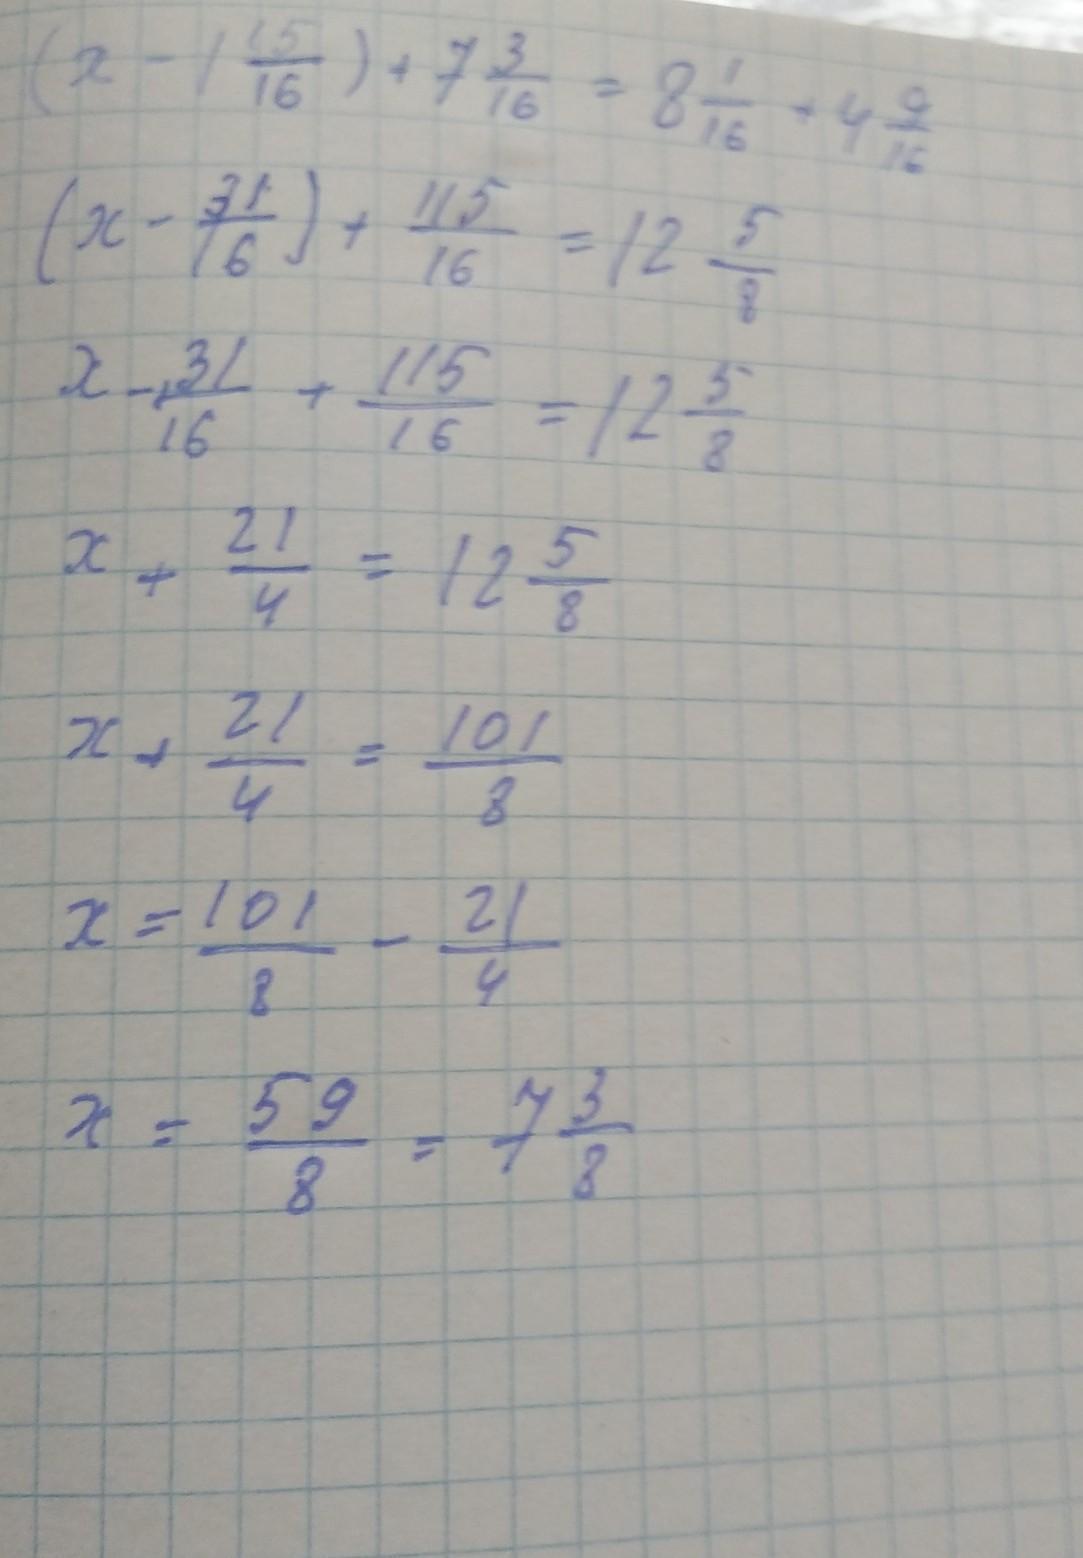 (x - 1 15/16) + 7 3/16 = 8 1/16 + 4 9/16
(x - 31/16) + 115/16 = 12 5/8
x - 31/16 + 115/16 = 12 5/8
x + 21/4 = 12 5/8
x + 21/4 = 101/8
x = 101/8 - 21/4
x = 59/8 = 7 3/8